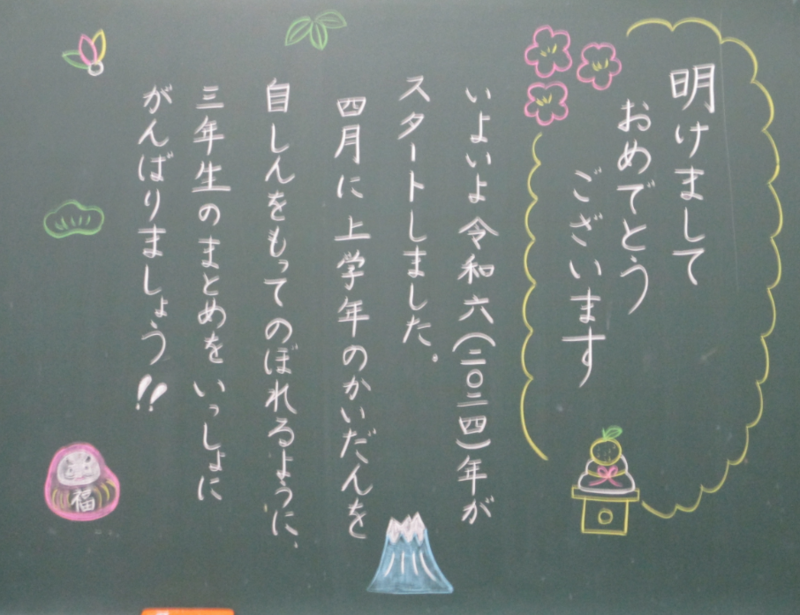 明けまして
おめでとう
ございます
いよいよ令和六(二〇二四)年が
スタートしました。
四月に上学年のかいだんを
自しんをもってのぼれるように、
三年生のまとめをいっしょに
がんばりましょう!!
福